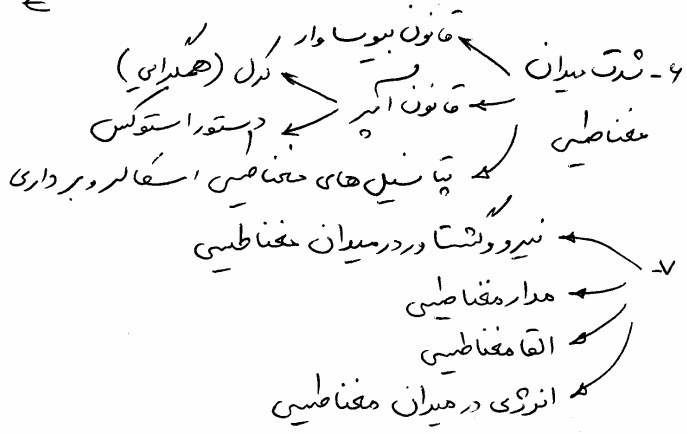 ۶- شدت میدان مغناطیسی
قانون بیوساوار
قانون آمپر
کرل (همگرایی)
دستور استوکس
پتانسیل‌های مغناطیسی اسکالر و برداری
۷-
نیرو و گشتاور در میدان مغناطیسی
مدار مغناطیسی
القا مغناطیسی
انرژی در میدان مغناطیسی